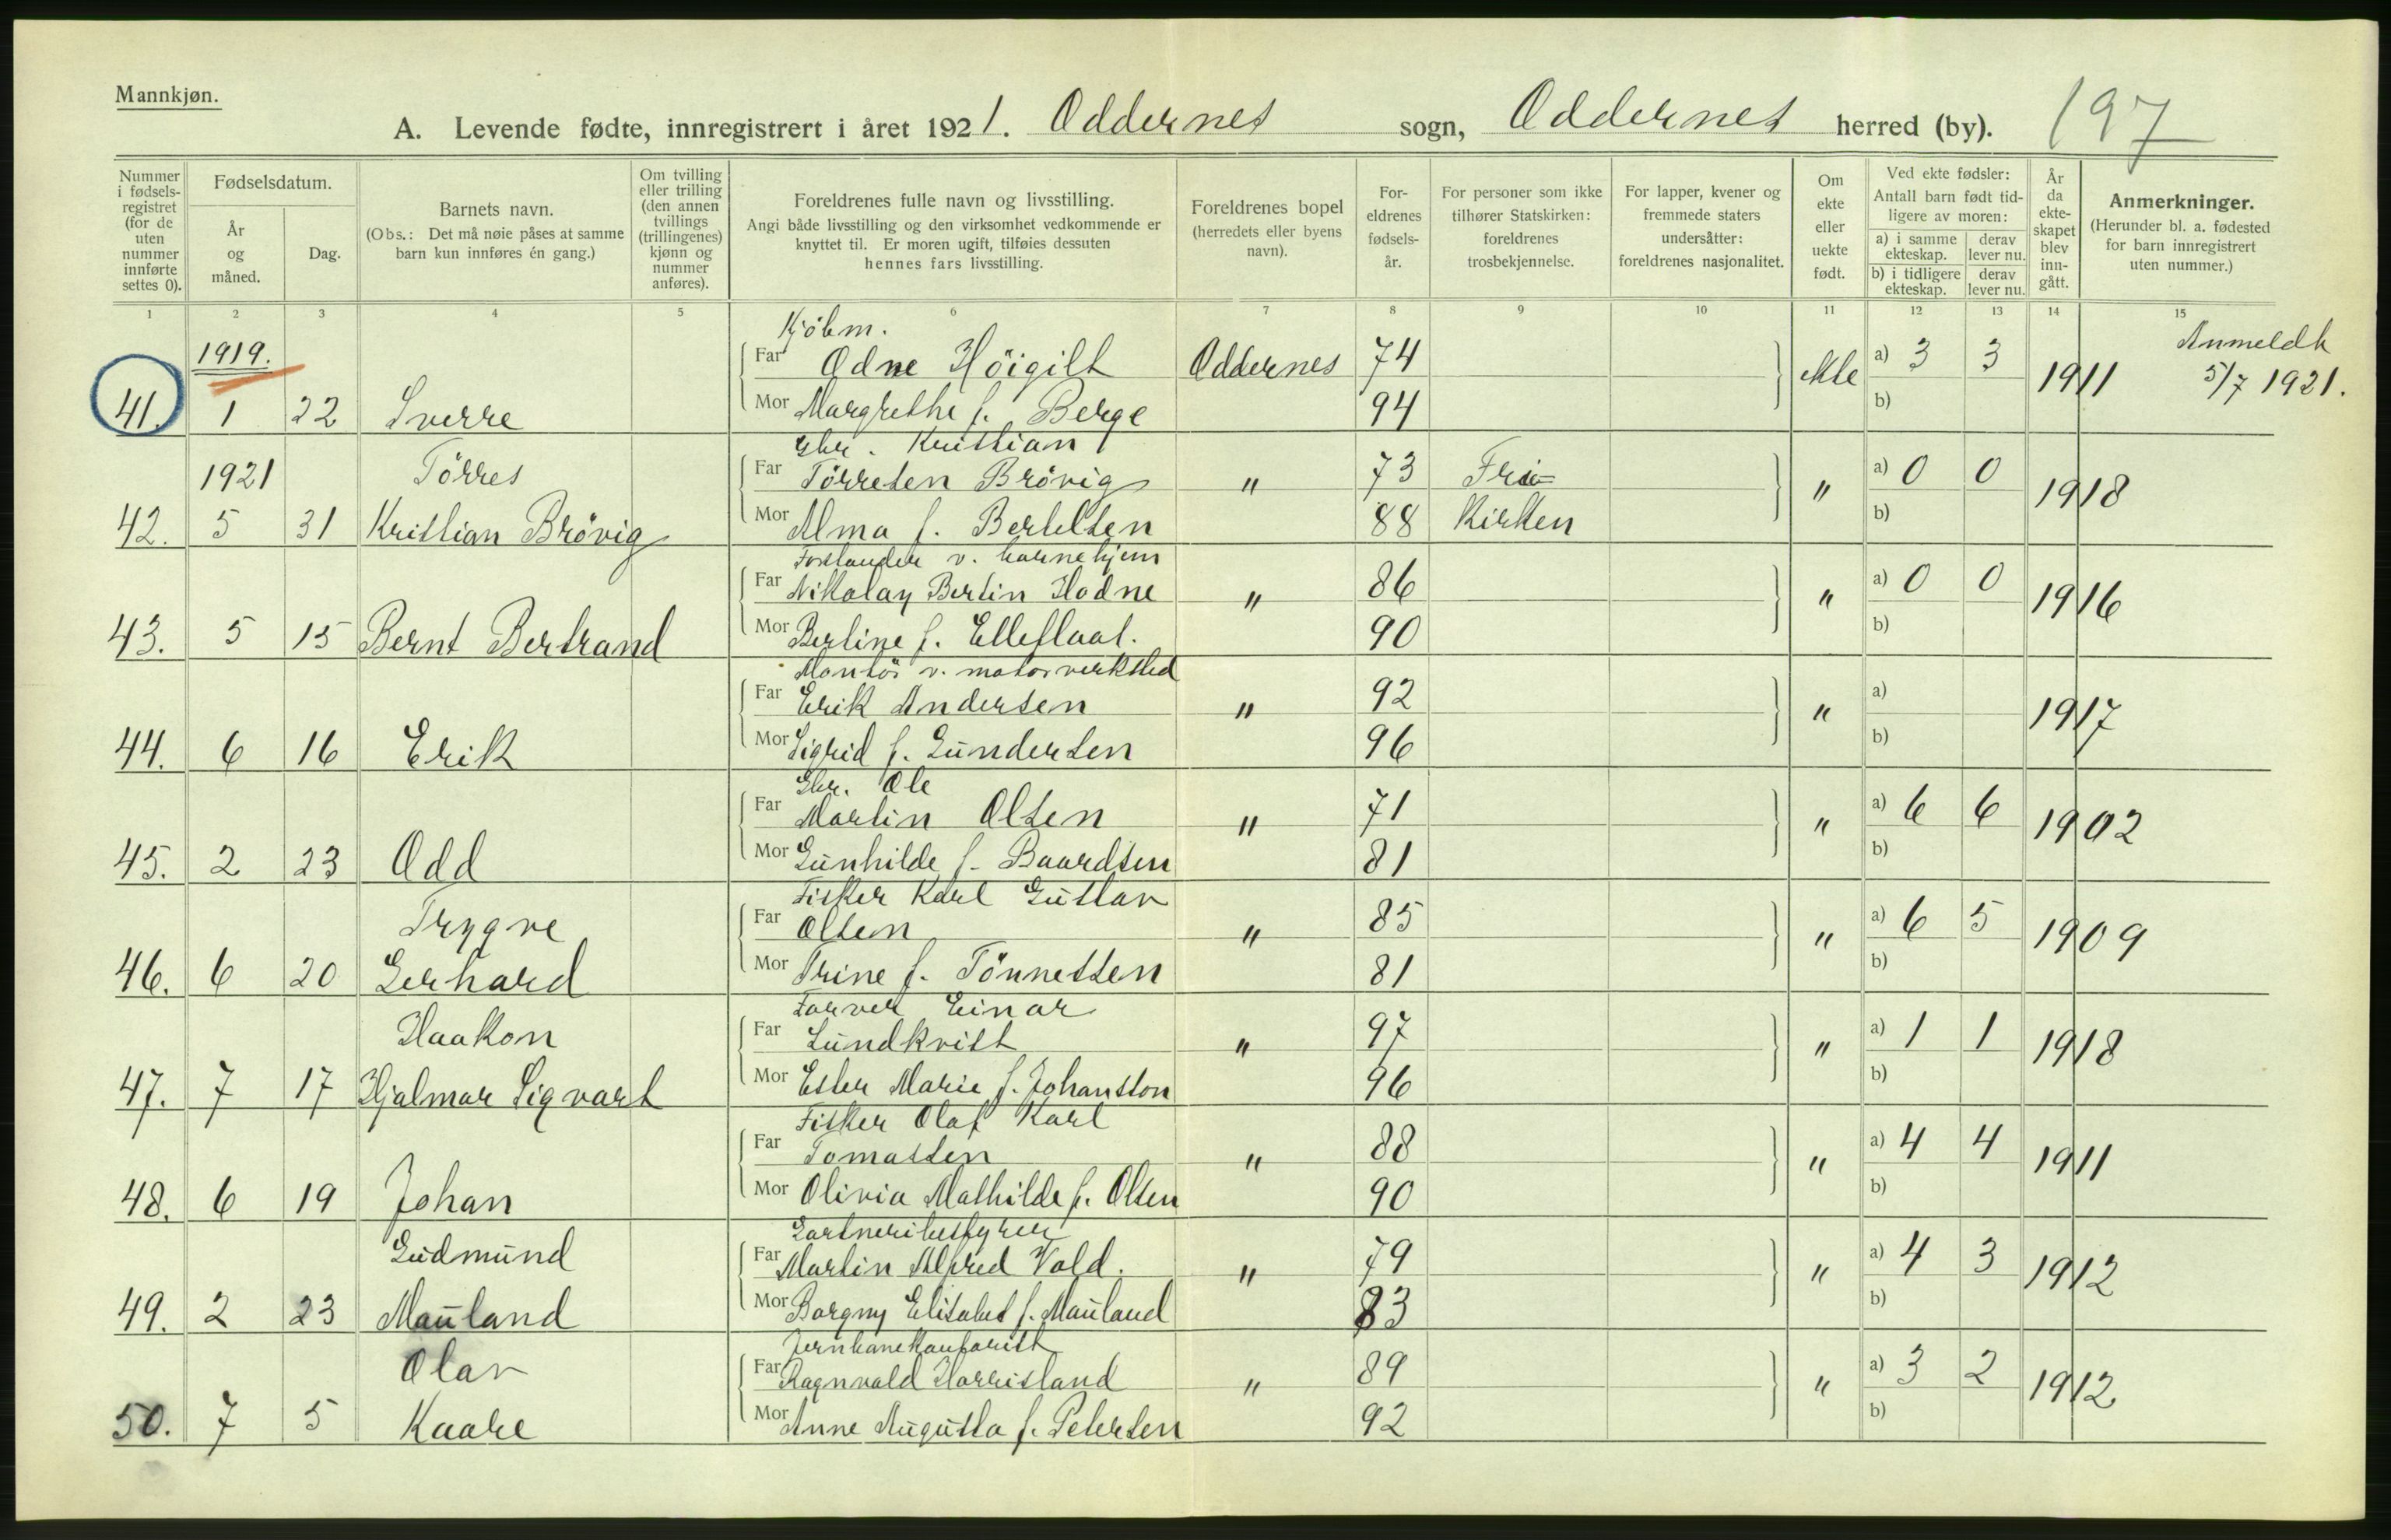 Mannkjøn.
A. Levende fødte, innregistrert i året 1921. Oddernes sogn, Oddernes herred (by). 197
Nummer i fødsels-registret (for de uten nummer innførte settes 0).
Fødselsdatum.
År og måned.
Dag.
Barnets navn.
(Obs.: Det må nøie påses at samme barn kun innføres én gang.)
Om tvilling eller trilling (den annen tvillings (trillingenes) kjønn og nummer anføres).
Foreldrenes fulle navn og livsstilling.
Angi både livsstilling og den virksomhet vedkommende er knyttet til. Er moren ugift, tilføies dessuten hennes fars livsstilling.
Foreldrenes bopel (herredets eller byens navn).
For-eldrenes fødsels-år.
For personer som ikke tilhører Statskirken: foreldrenes trosbekjennelse.
For lapper, kvener og fremmede staters undersåtter: foreldrenes nasjonalitet.
Om ekte eller uekte født.
Ved ekte fødsler: Antall barn født tid-ligere av moren:
a) i samme ekteskap. derav lever nu.
b) i tidligere ekteskap. derav lever nu.
År da ekte-skapet blev inn-gått.
Anmerkninger.
(Herunder bl. a. fødested for barn innregistrert uten nummer.)
1 2 3 4 5 6 7 8 9 10 11 12 13 14 15
Kjöbm.
1919. Far Odne Höigilt Oddernes 74 ekte a) 3 3 1911 Anmeldt 5/7 1921.
41. 1 22 Sverre Mor Margrethe f. Berge 94 b)
Gbr. Kristian
1921 Törres Far Törresen Brövig " 73 Fri= " a) 0 0 1918
42. 5 31 Kristian Brövig Mor Alma f. Bertelsen 88 Kirken b)
Forstander v. barnehjem
Far Nikolay Bertin Hodne " 86 " a) 0 0 1916
43. 5 15 Bernt Bertrand Mor Berline f. Elleflaat. 90 b)
Montör v. motorverksted
Far Erik Andersen " 92 " a) 1917
44. 6 16 Erik Mor Sigrid f. Gundersen 96 b)
Gbr. Ole
Far Martin Olsen " 71 " a) 6 6 1902
45. 2 23 Odd Mor Gunhilde f. Baardsen 81 b)
Fisker Karl Gustav
Trygve Far Olsen " 85 " a) 6 5 1909
46. 6 20 Gerhard Mor Trine f. Tönnessen 81 b)
Farver Einar
Haakon Far Lundkvist " 97 " a) 1 1 1918
47. 7 17 Hjalmar Sigvart Mor Ester Marie f. Johansson 96 b)
Fisker Olaf Karl
Far Tomassen " 88 " a) 4 4 1911
48. 6 19 Johan Mor Olivia Mathilde f. Olsen 90 b)
Gartneribestyrer
Gudmund Far Martin Alfred Vold. " 79 " a) 4 3 1912
49. 2 23 Mauland Mor Borgny Elisabet f. Mauland 83 b)
Jernbanekontorist
Olav Far Ragnvald Harrisland " 89 " a) 3 2 1912
50. 7 5 Kaare Mor Anne Augusta f. Petersen 92 b)